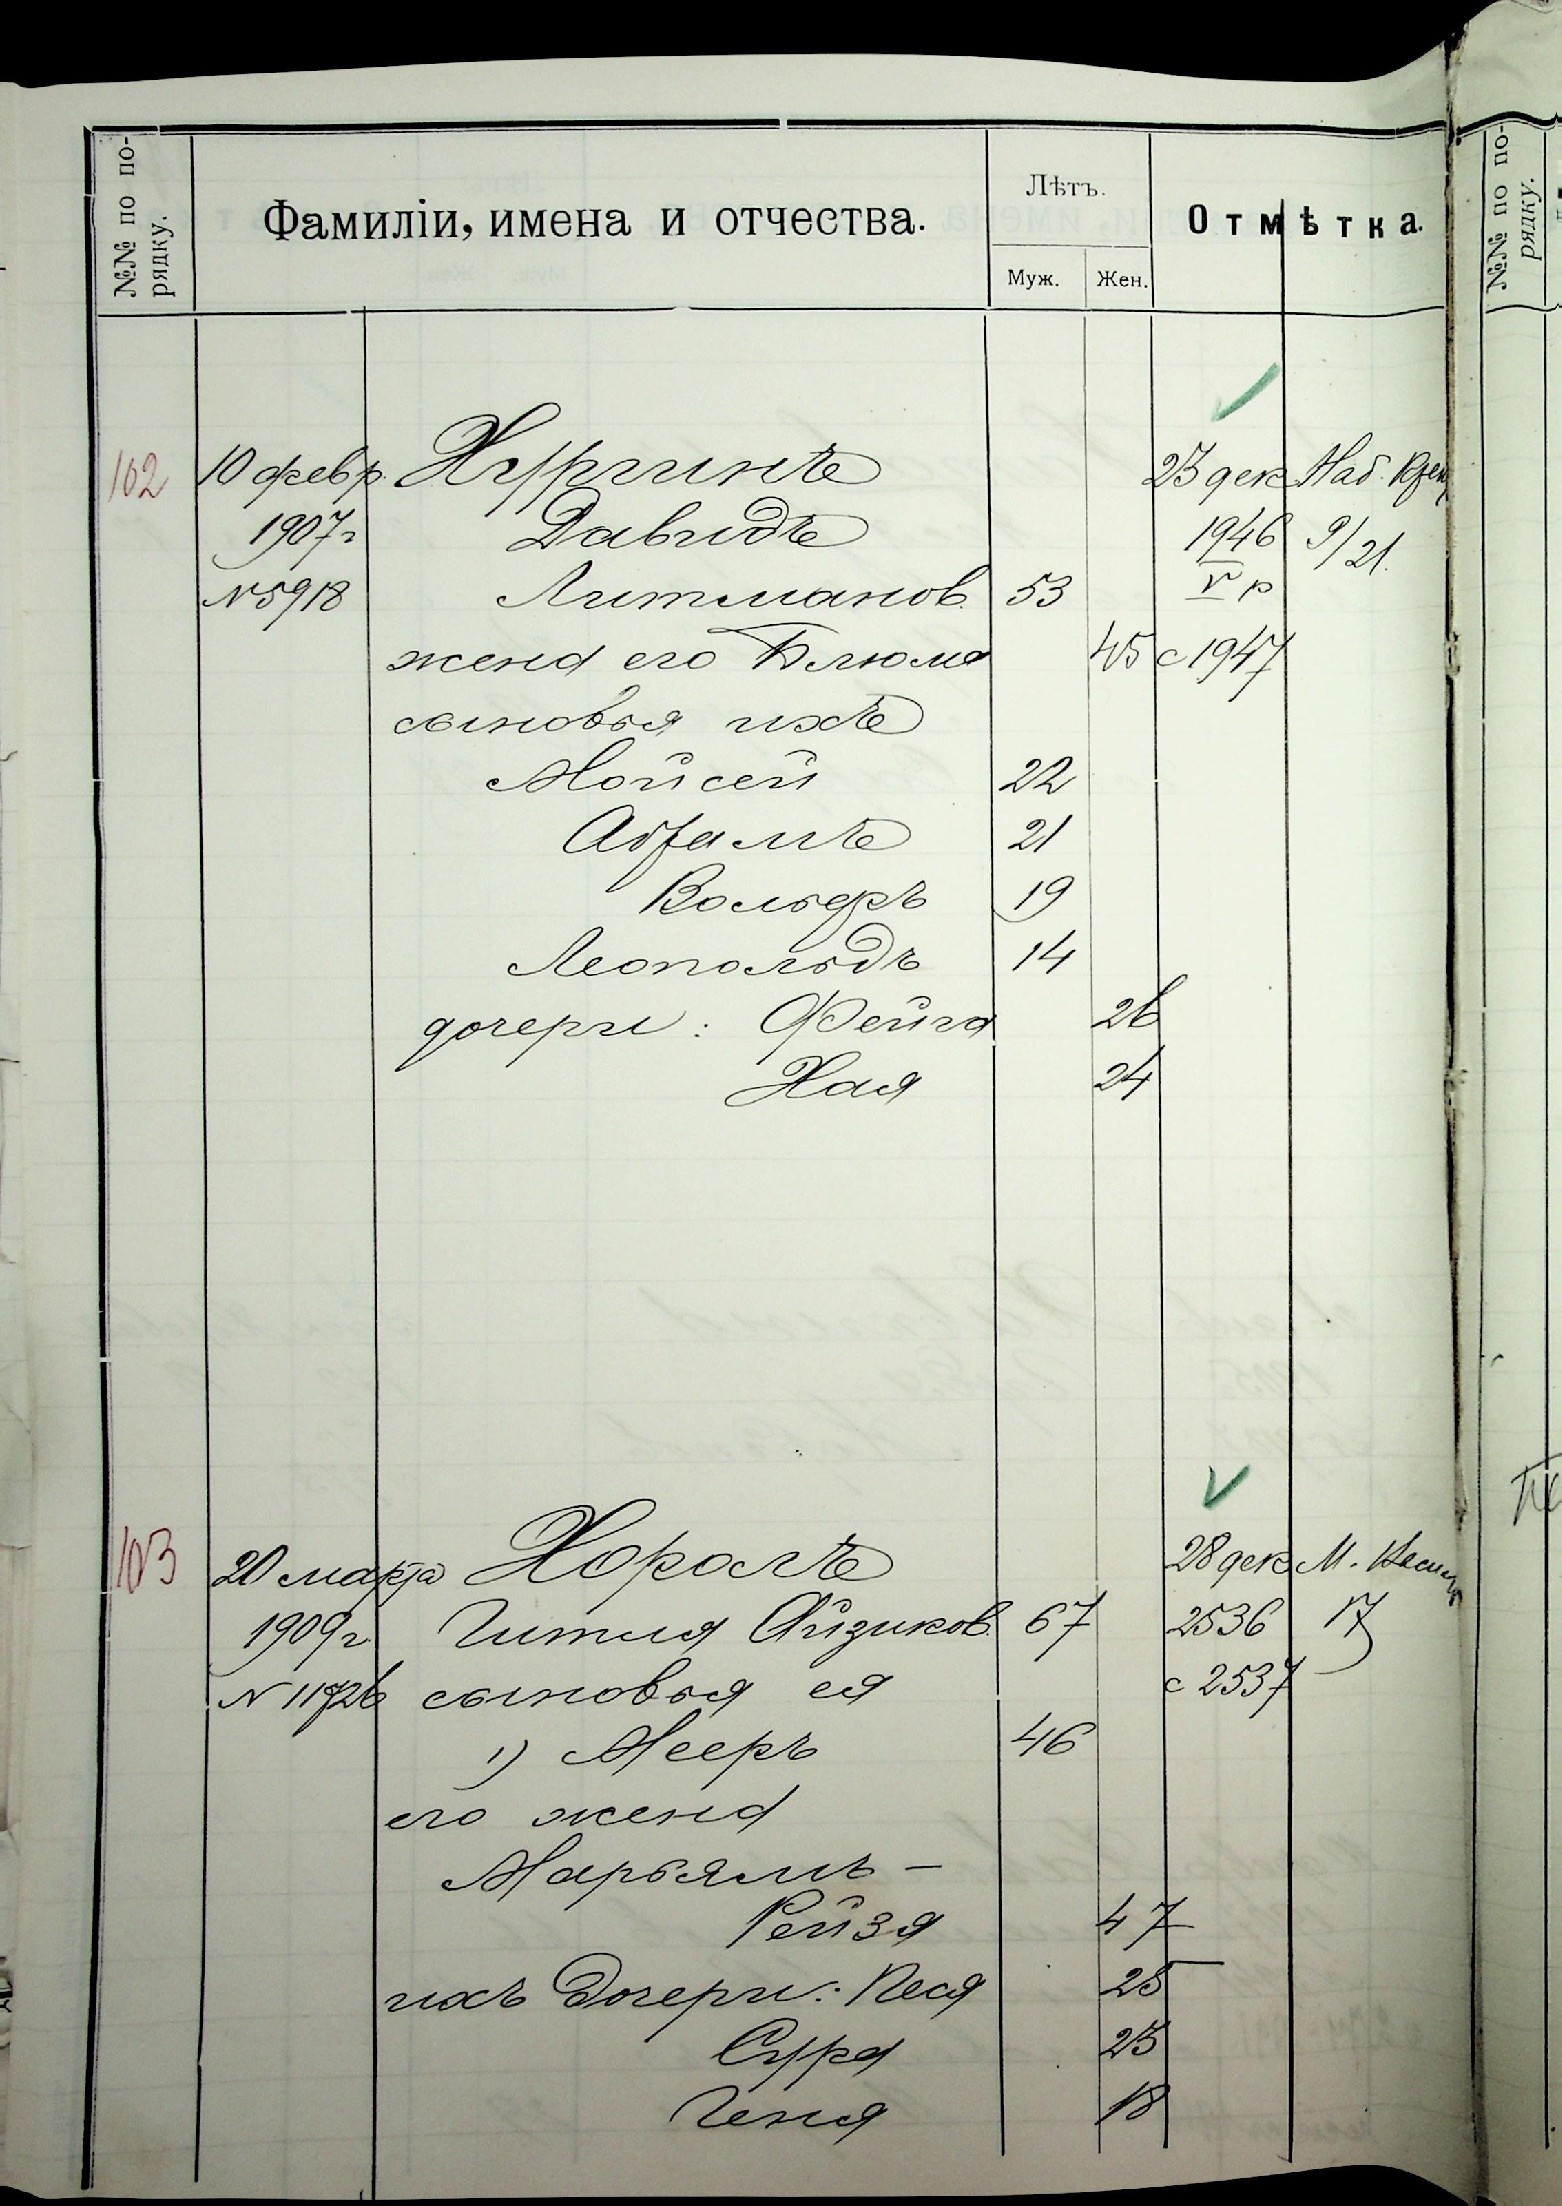 №№ по по-
рядку.
Фамиліи, имена и отчества.
Лѣтъ.
Муж.
Жен.
Отмѣтка.
№№ по по-
рядку.
102 10 февр. Хургинъ 23 дек Наб.
1907г Давидъ 1946 9/21.
№5918 Литманов. 53 V р
жена его Блюма 45 с 1947
сыновья ихъ
Мойсей 22
Абрамъ 21
Вольфъ 19
Леопольдъ 14
дочери: Фейга 26
Хая 24
103 20 марта Хоролъ 28 дек М.
1909г Гитля Айзиков. 67 2536 17
№ 11726 сыновья ея с 2537
1) Мееръ 46
его жена
Марьямъ-
Рейзя 47
ихъ дочери: Песя 25
Сура 23
Геня 18